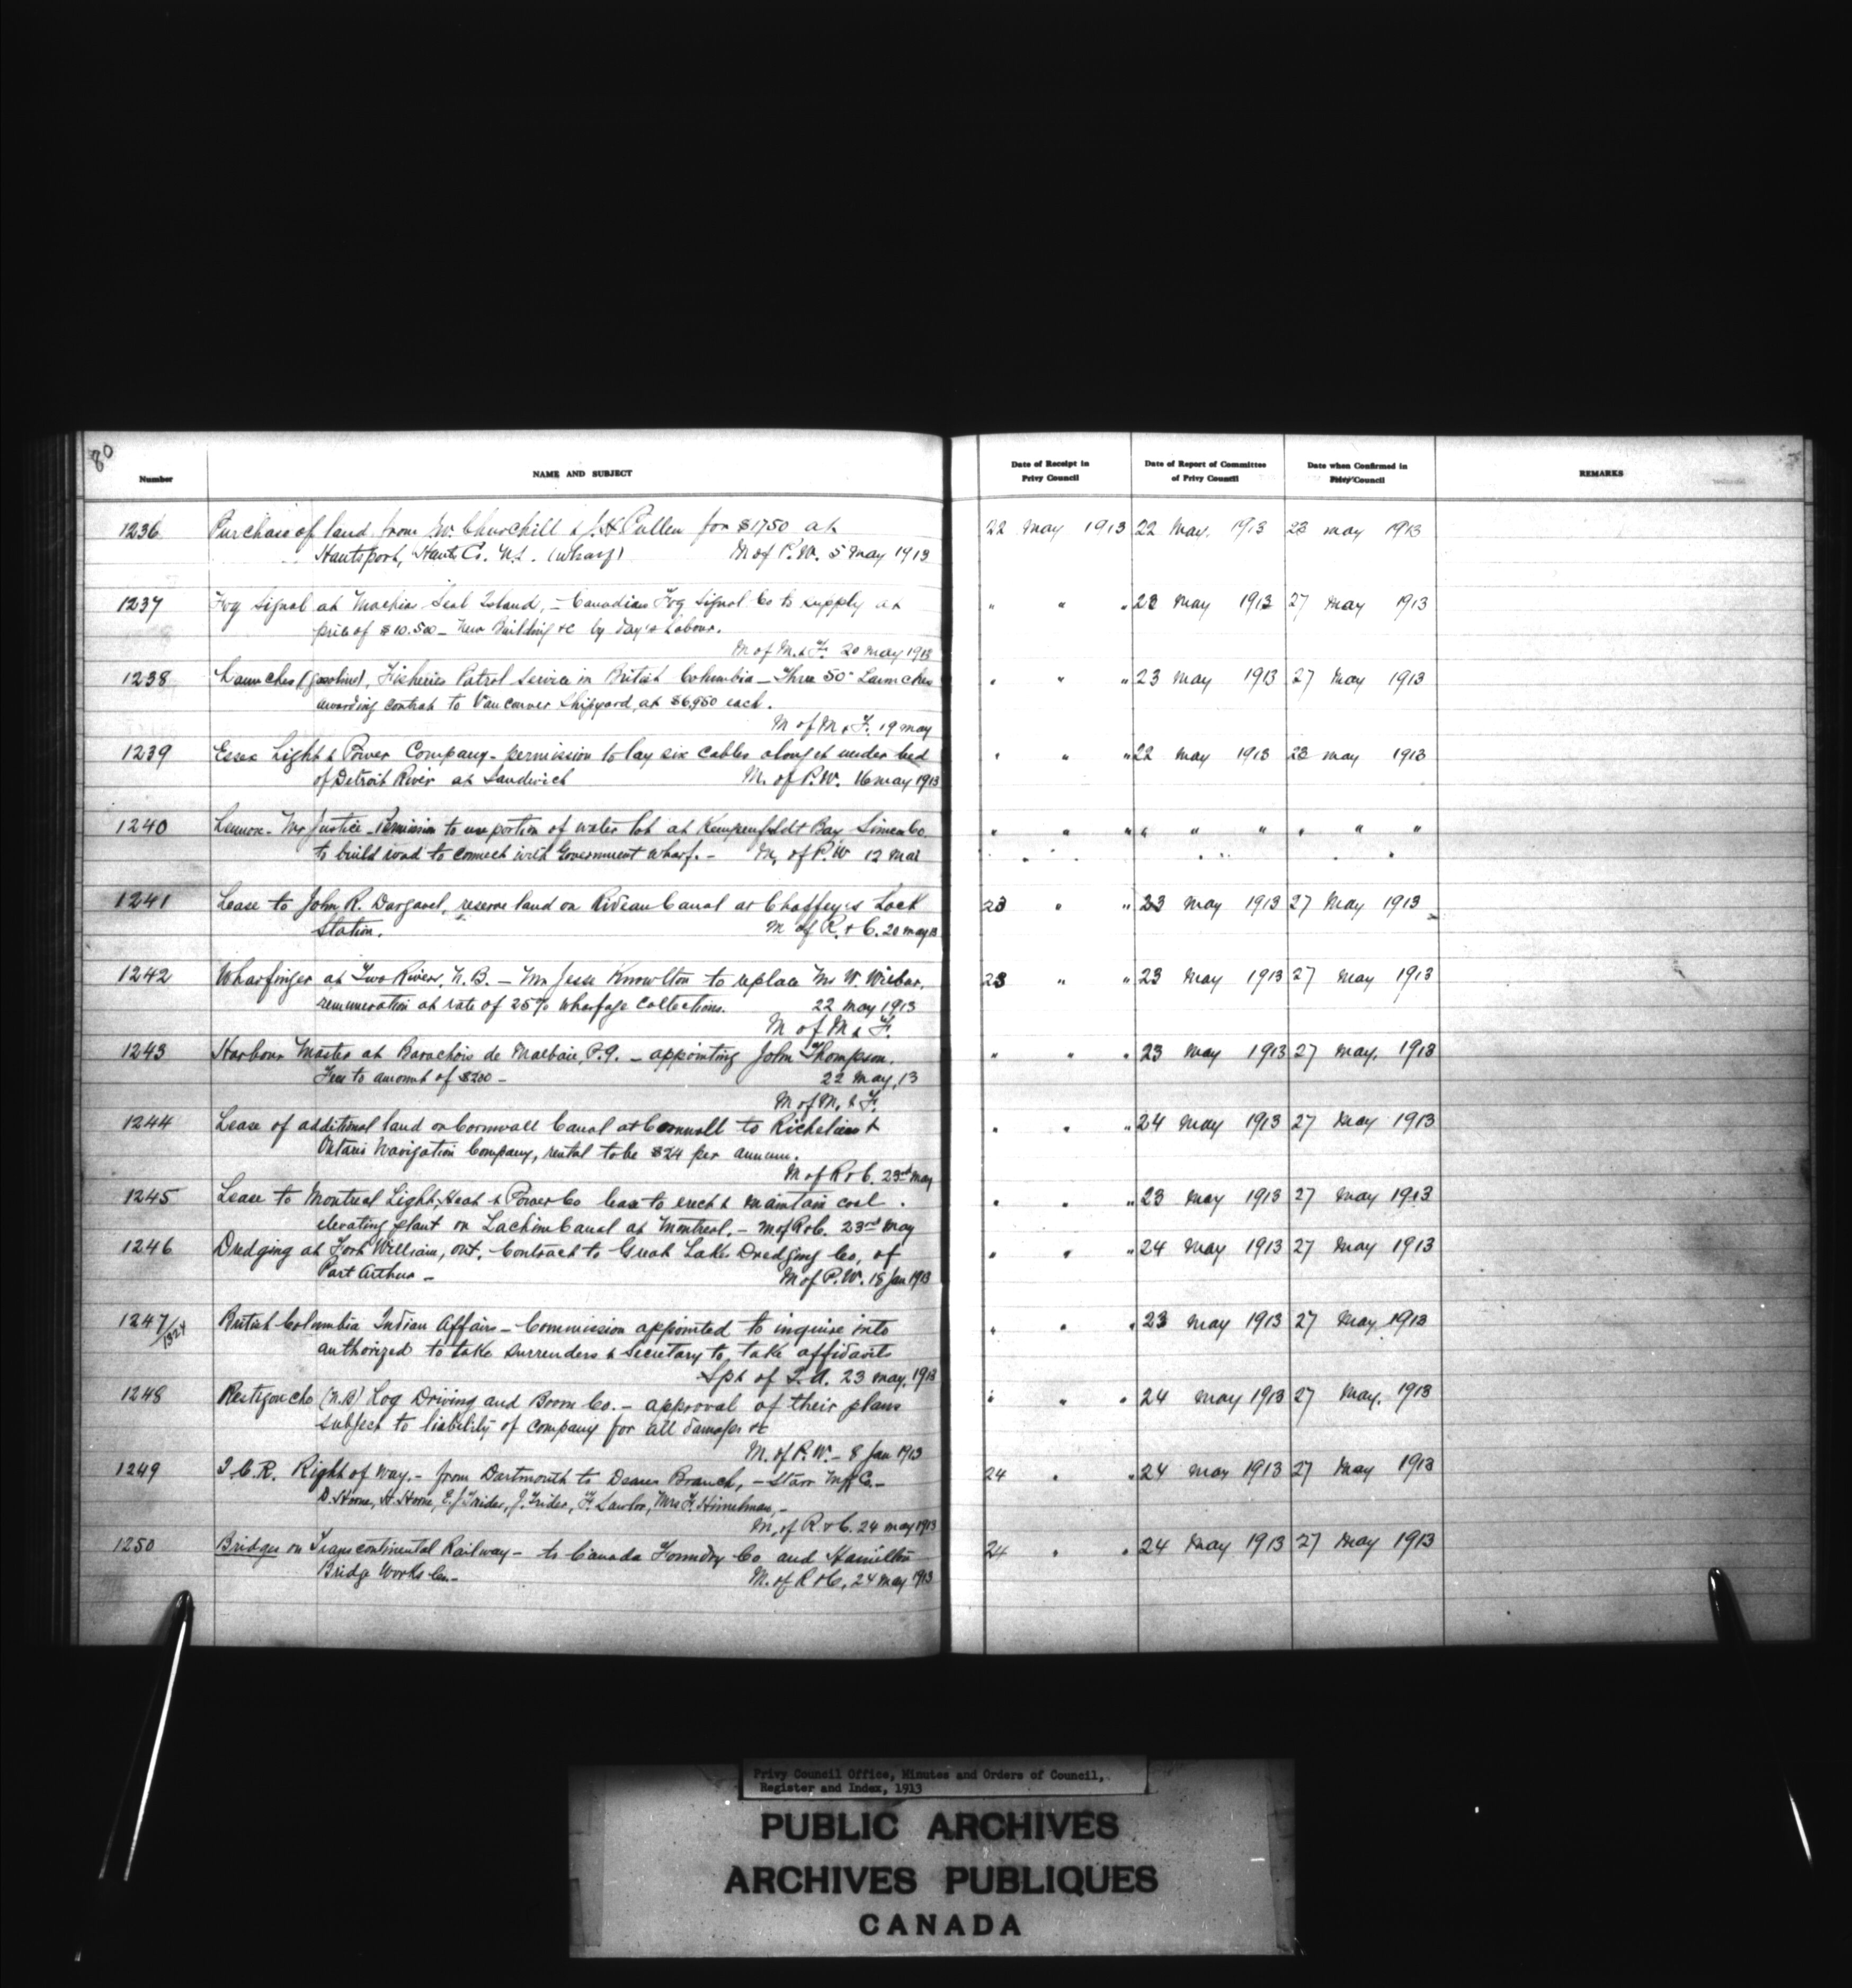 80
Number NAME AND SUBJECT Date of Receipt in Privy Council Date of Report of Committee of Privy Council Date when Confirmed in Privy Council REMARKS
1236 Purchase of land from W. Churchill & J. H. Pullen for $1750 at 22 May 1913 22 May, 1913 23 May 1913
Hantsport, Hants Co. N.S. (Wharf) M of P.W. 5 May 1913
1237 Fog Signal at Machias Seal Island, – Canadian Fog Signal Co to supply at " " " 23 May 1913 27 May 1913
price of $10.500 – New Building &c by day's Labour.
M of M. & F. 20 May 1913
1238 Launches (gasoline), Fisheries Patrol Service in British Columbia – Three 50' Launches " " " 23 May 1913 27 May 1913
awarding contract to Vancouver Shipyard, at $6,950 each.
M of M & F. 19 May
1239 Essex Light & Power Company – permission to lay six cables along & under bed " " " 22 May 1913 23 May 1913
of Detroit River at Sandwich M. of P.W. 16 May 1913
1240 Lennox – Mr Justice – Permission to use portion of water lot at Kempenfeldt Bay Simcoe Co. " " " " " " " " "
to build road to connect with Government Wharf. – M. of P.W 12 Mar
1241 Lease to John R. Dargavel, reserve land on Rideau Canal at Chaffey's Lock 23 " " 23 May 1913 27 May 1913
Station. M of R. & C. 20 May 13
1242 Wharfinger at Two Rivers, N.B. – Mr Jesse Knowlton to replace Mr W. Wilbur, 23 " " 23 May 1913 27 May 1913
remuneration at rate of 25% Wharfage Collections. 22 May 1913
M of M & F.
1243 Harbour Master at Barachois de Malbaie, P.Q. – appointing John Thompson. " " " 23 May 1913 27 May, 1913
Fees to amount of $200 – 22 May, 13
M of M. & F.
1244 Lease of additional land on Cornwall Canal at Cornwall to Richelieu & " " " 24 May 1913 27 May 1913
Ontario Navigation Company, rental to be $24 per annum.
M of R & C. 23rd May
1245 Lease to Montreal Light, Heat & Power Co lease to erect & maintain coal " " " 23 May 1913 27 May 1913
elevating plant on Lachine Canal at Montreal. – M of R & C. 23rd May
1246 Dredging at Fort William, Ont. Contract to Great Lakes Dredging Co, of " " " 24 May 1913 27 May 1913
Port Arthur – M of P.W. 18 Jan 1913
1247/1324 British Columbia Indian Affairs – Commission appointed to inquire into " " " 23 May 1913 27 May, 1913
authorized to take surrenders & Secretary to take affidavits
Spt of I.A. 23 May, 1913
1248 Restigouche (N.B) Log Driving and Boom Co. – approval of their plans " " " 24 May 1913 27 May, 1913
subject to liability of company for all damages &c
M. of P.W. – 8 Jan 1913
1249 I.C.R. Right of Way. – from Dartmouth to Deans Branch, – Starr Mfg Co. – 24 " " 24 May 1913 27 May 1913
D. Horne, H. Horne, E. J. Trider, J. Trider, F. Lawlor, Mrs F. Himelman, –
M. of R. & C. 24 May 1913
1250 Bridges on Transcontinental Railway – to Canada Foundry Co and Hamilton 24 " " 24 May 1913 27 May 1913
Bridge Works Co. – M. of R & C, 24 May 1913
Privy Council Office, Minutes and Orders of Council,
Register and Index, 1913
PUBLIC ARCHIVES
ARCHIVES PUBLIQUES
CANADA